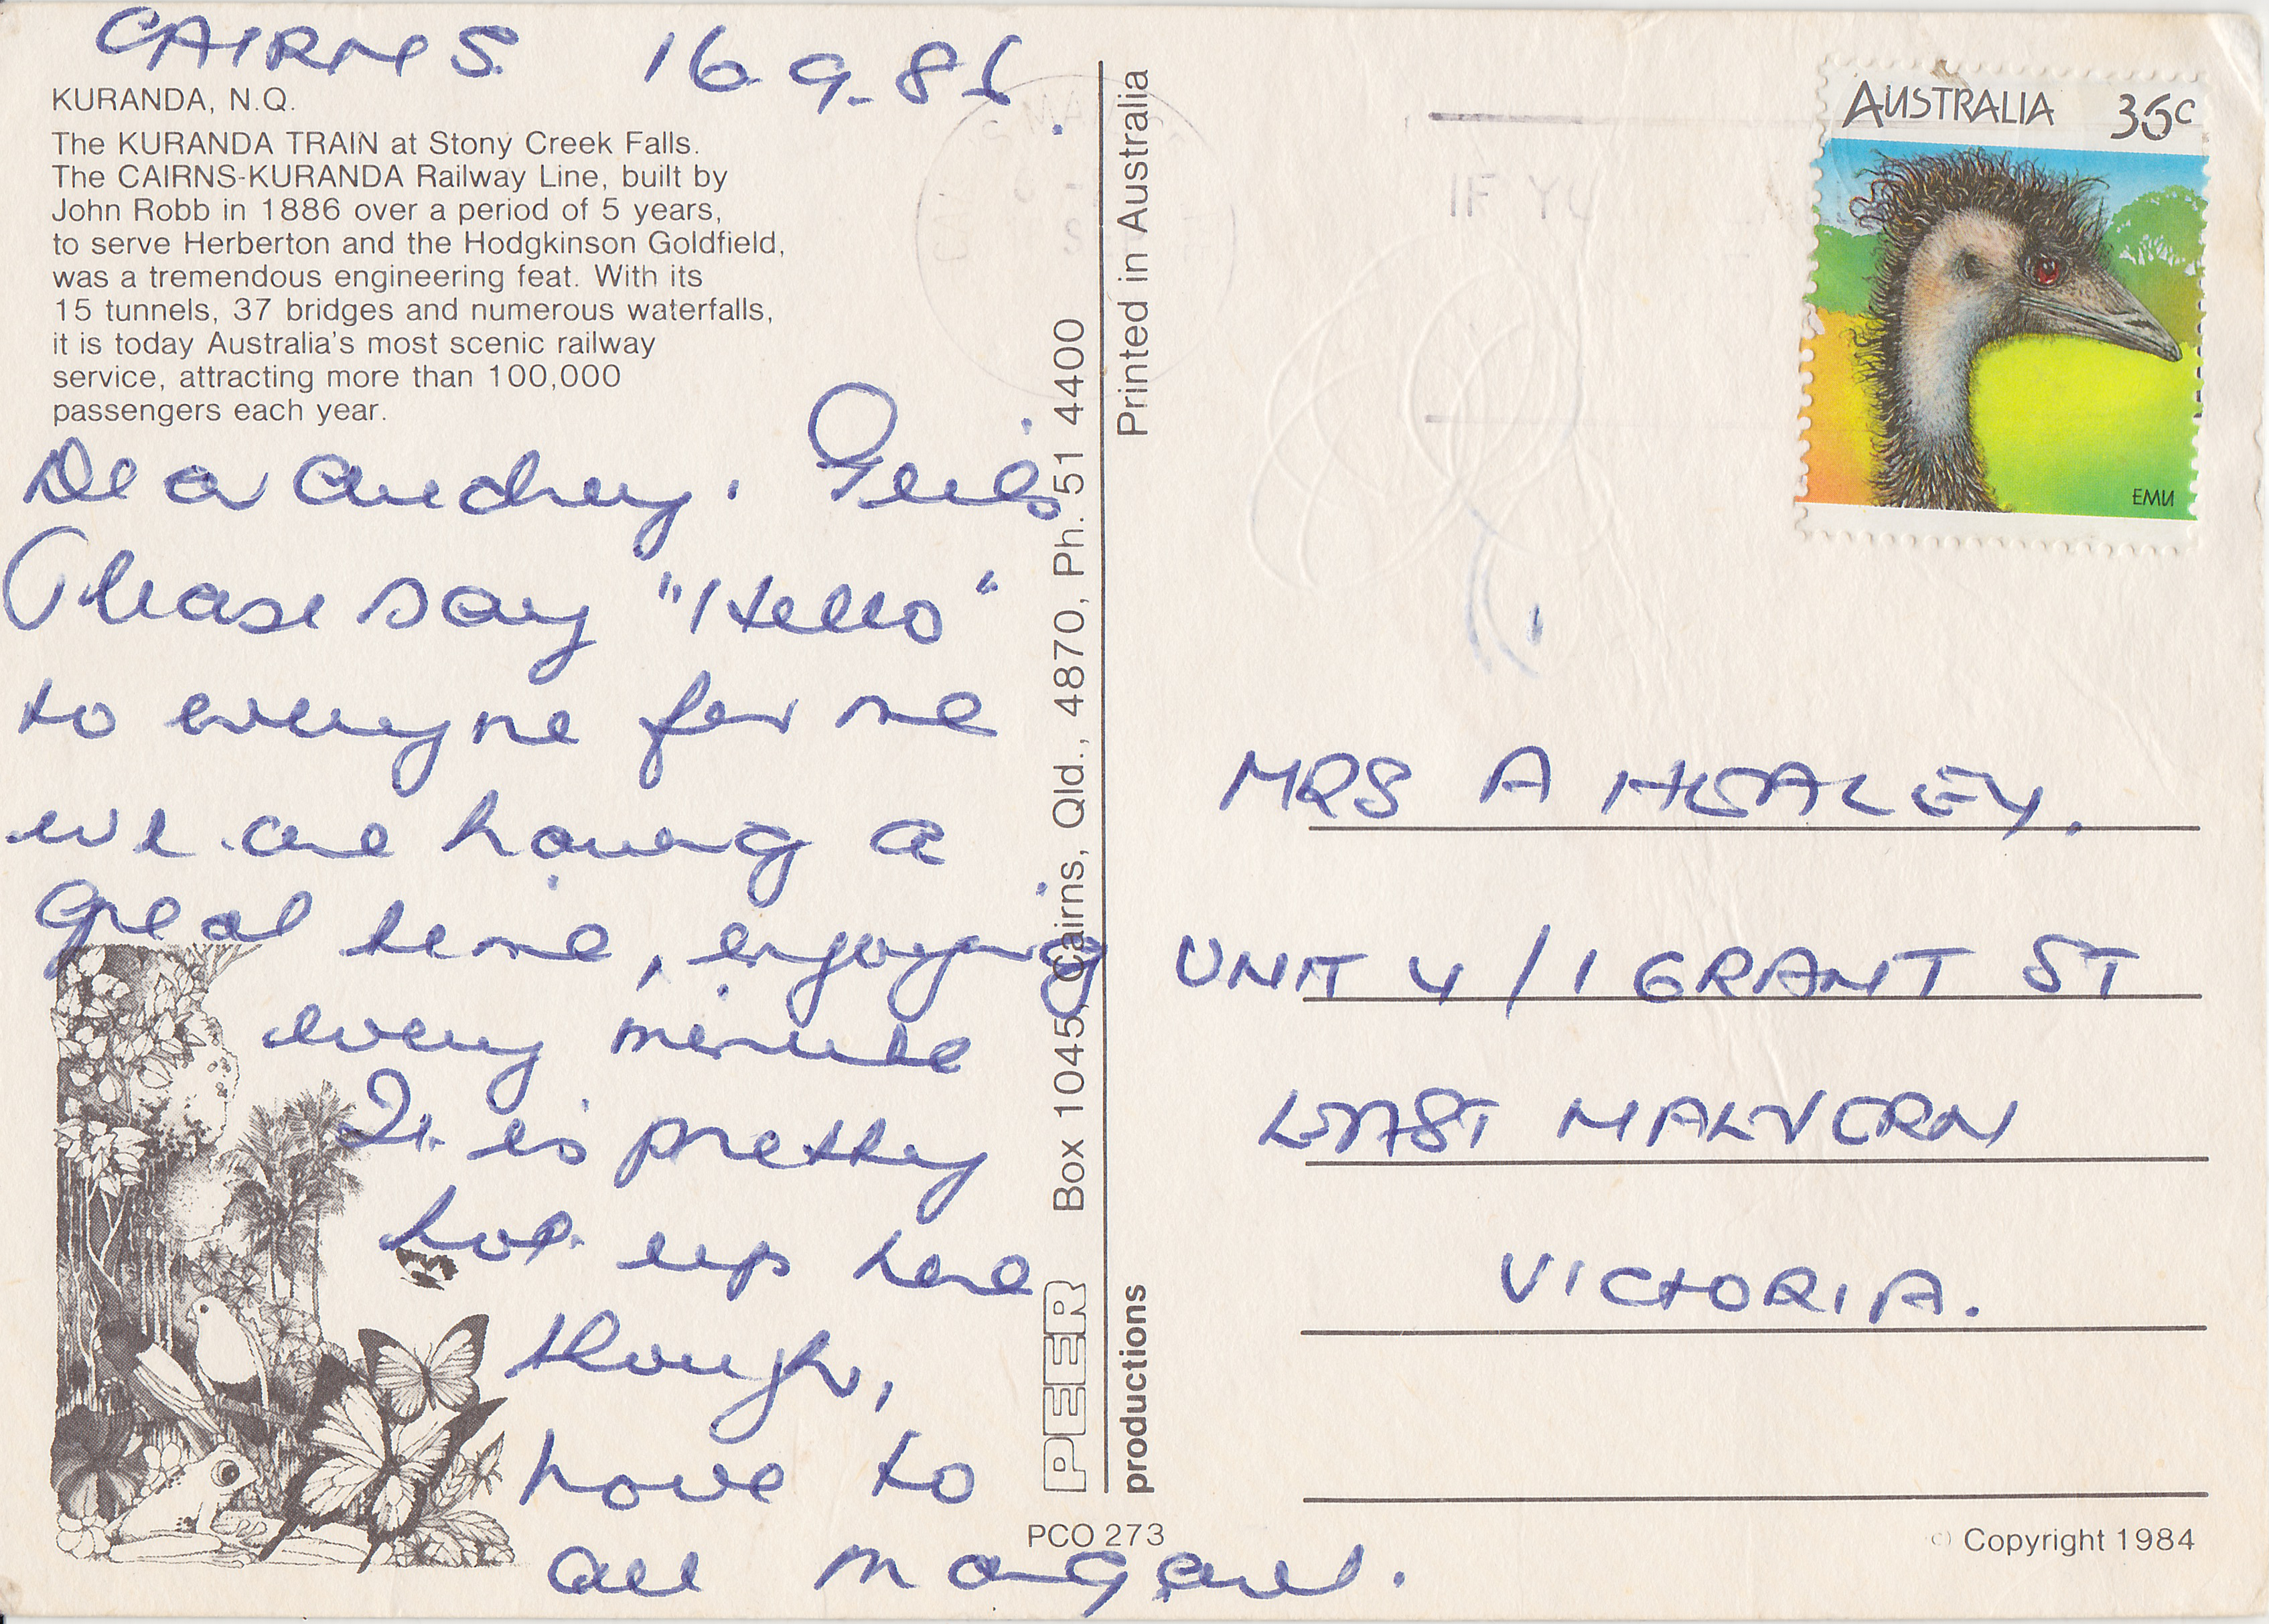 CAIRNS 16.9.86.
KURANDA, N.Q.
The KURANDA TRAIN at Stony Creek Falls.
The CAIRNS-KURANDA Railway Line, built by
John Robb in 1886 over a period of 5 years,
to serve Herberton and the Hodgkinson Goldfield,
was a tremendous engineering feat. With its
15 tunnels, 37 bridges and numerous waterfalls,
it is today Australia's most scenic railway
service, attracting more than 100,000
passengers each year.
Dear Audrey.
Please say "Hello"
to everyone for me
we are having a
great time, enjoying
every minute
It is pretty
hot up here
though,
Love to
all Margaret.
PEER productions
Box 1045, Cairns, Qld., 4870, Ph. 51 4400
Printed in Australia
PCO 273
IF YOU
AUSTRALIA 36c
EMU
MRS A HEALEY.
UNIT 4/1 GRANT ST
EAST MALVERN
VICTORIA.
© Copyright 1984